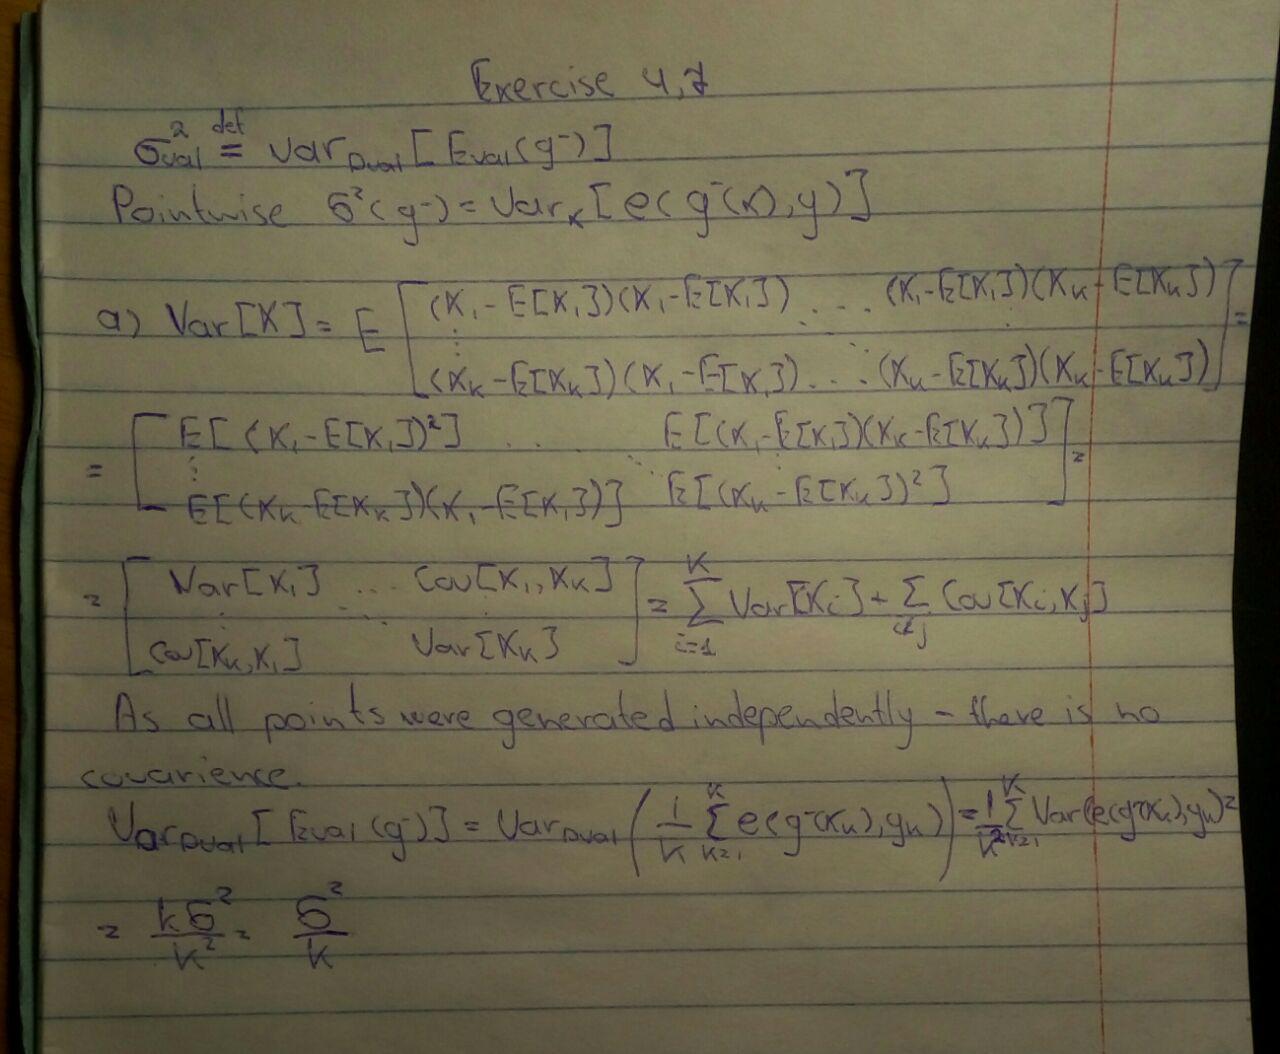 Exercise 4,7
σ²val def= Var_Dval [Eval(g⁻)]
Pointwise σ²(g⁻) = Var_x[e(g⁻(x),y)]
a) Var[X] = E [ (X₁-E[X₁])(X₁-E[X₁]) .... (X₁-E[X₁])(X_K-E[X_K]) ⋮ (X_K-E[X_K])(X₁-E[X₁]) .... (X_K-E[X_K])(X_K-E[X_K]) ] =
= [ E[(X₁-E[X₁])²] ... E[(X₁-E[X₁])(X_K-E[X_K])] ⋮ E[(X_K-E[X_K])(X₁-E[X₁])] E[(X_K-E[X_K])²] ] =
= [ Var[X₁] ... Cov[X₁,X_K] ⋮ Cov[X_K,X₁] Var[X_K] ] = Σ_{i=1}^{K} Var[X_i] + Σ_{i≠j} Cov[X_i,X_j]
As all points were generated independently - there is no
covarience.
Var_Dval [Eval(g⁻)] = Var_Dval (1/K Σ_{k=1}^{K} e(g⁻(x_k),y_k)) = 1/K² Σ_{k=1}^{K} Var(e(g⁻(x_k),y_k) =
= Kσ²/K² = σ²/K